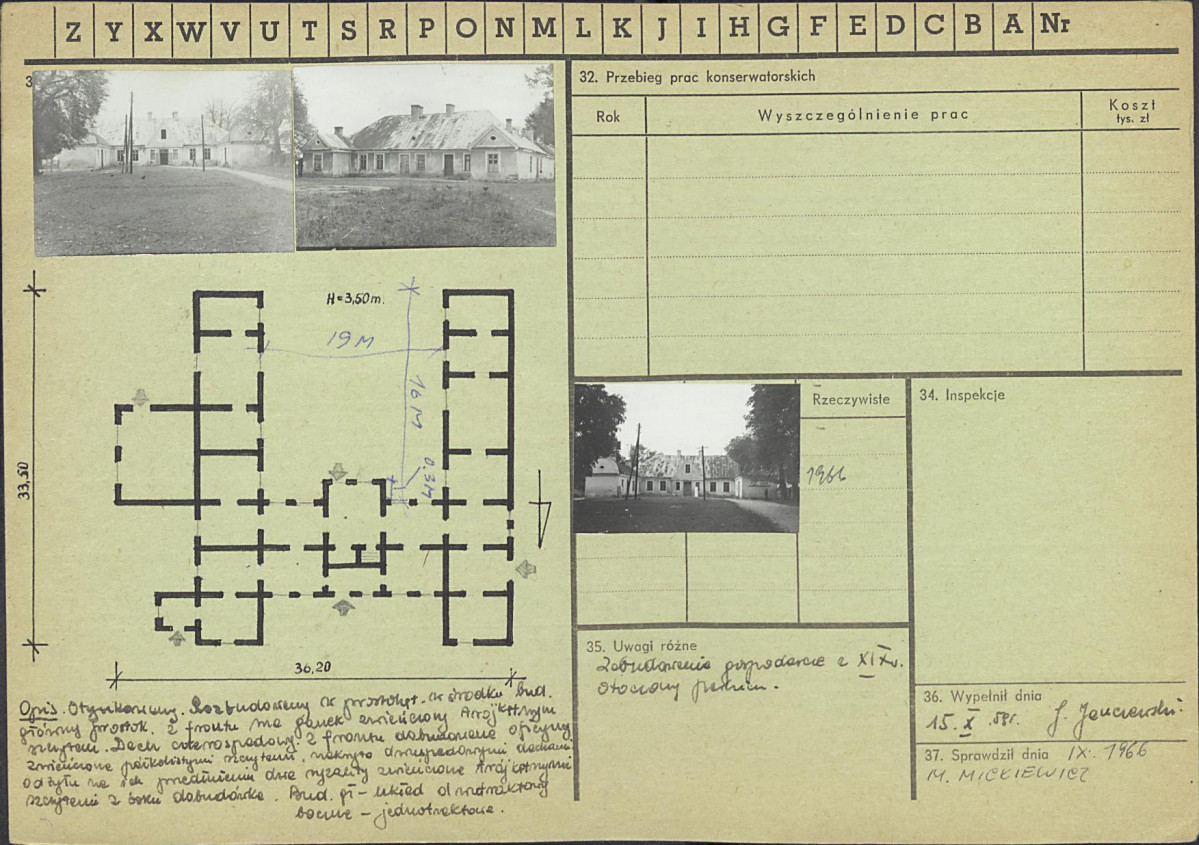 Z Y X W V U T S R P O N M L K J I H G F E D C B A Nr
3
32. Przebieg prac konserwatorskich
Rok Wyszczególnienie prac Koszt
tys. zł
H=3,50m.
19 M
16 M
0.3M
33,50
36,20
Rzeczywiste
1966
34. Inspekcje
35. Uwagi różne
Zabudowania gospodarcze z XIXw.
Otoczony parkiem.
36. Wypełnił dnia
15. X. 59r. J. Janczewski
37. Sprawdził dnia IX. 1966
M. MICKIEWICZ
Opis. Otynkowany. Rozbudowany w prostokąt. w środku bud.
główny prostok. z frontu ma ganek zwieńczony trójkątnym
szczytem. Dach czterospadowy. z frontu dobudowane oficyny
zwieńczone półkolistymi szczytami, nakryte dwuspadowymi dachami
od tyłu na ich przedłużeniu dwa ryzality zwieńczone trójkątnymi
szczytami z boku dobudówka. Bud. gł - układ dwutraktowy
boczne - jednotraktowe.